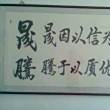 晟晟因以信为
騰騰于以质优